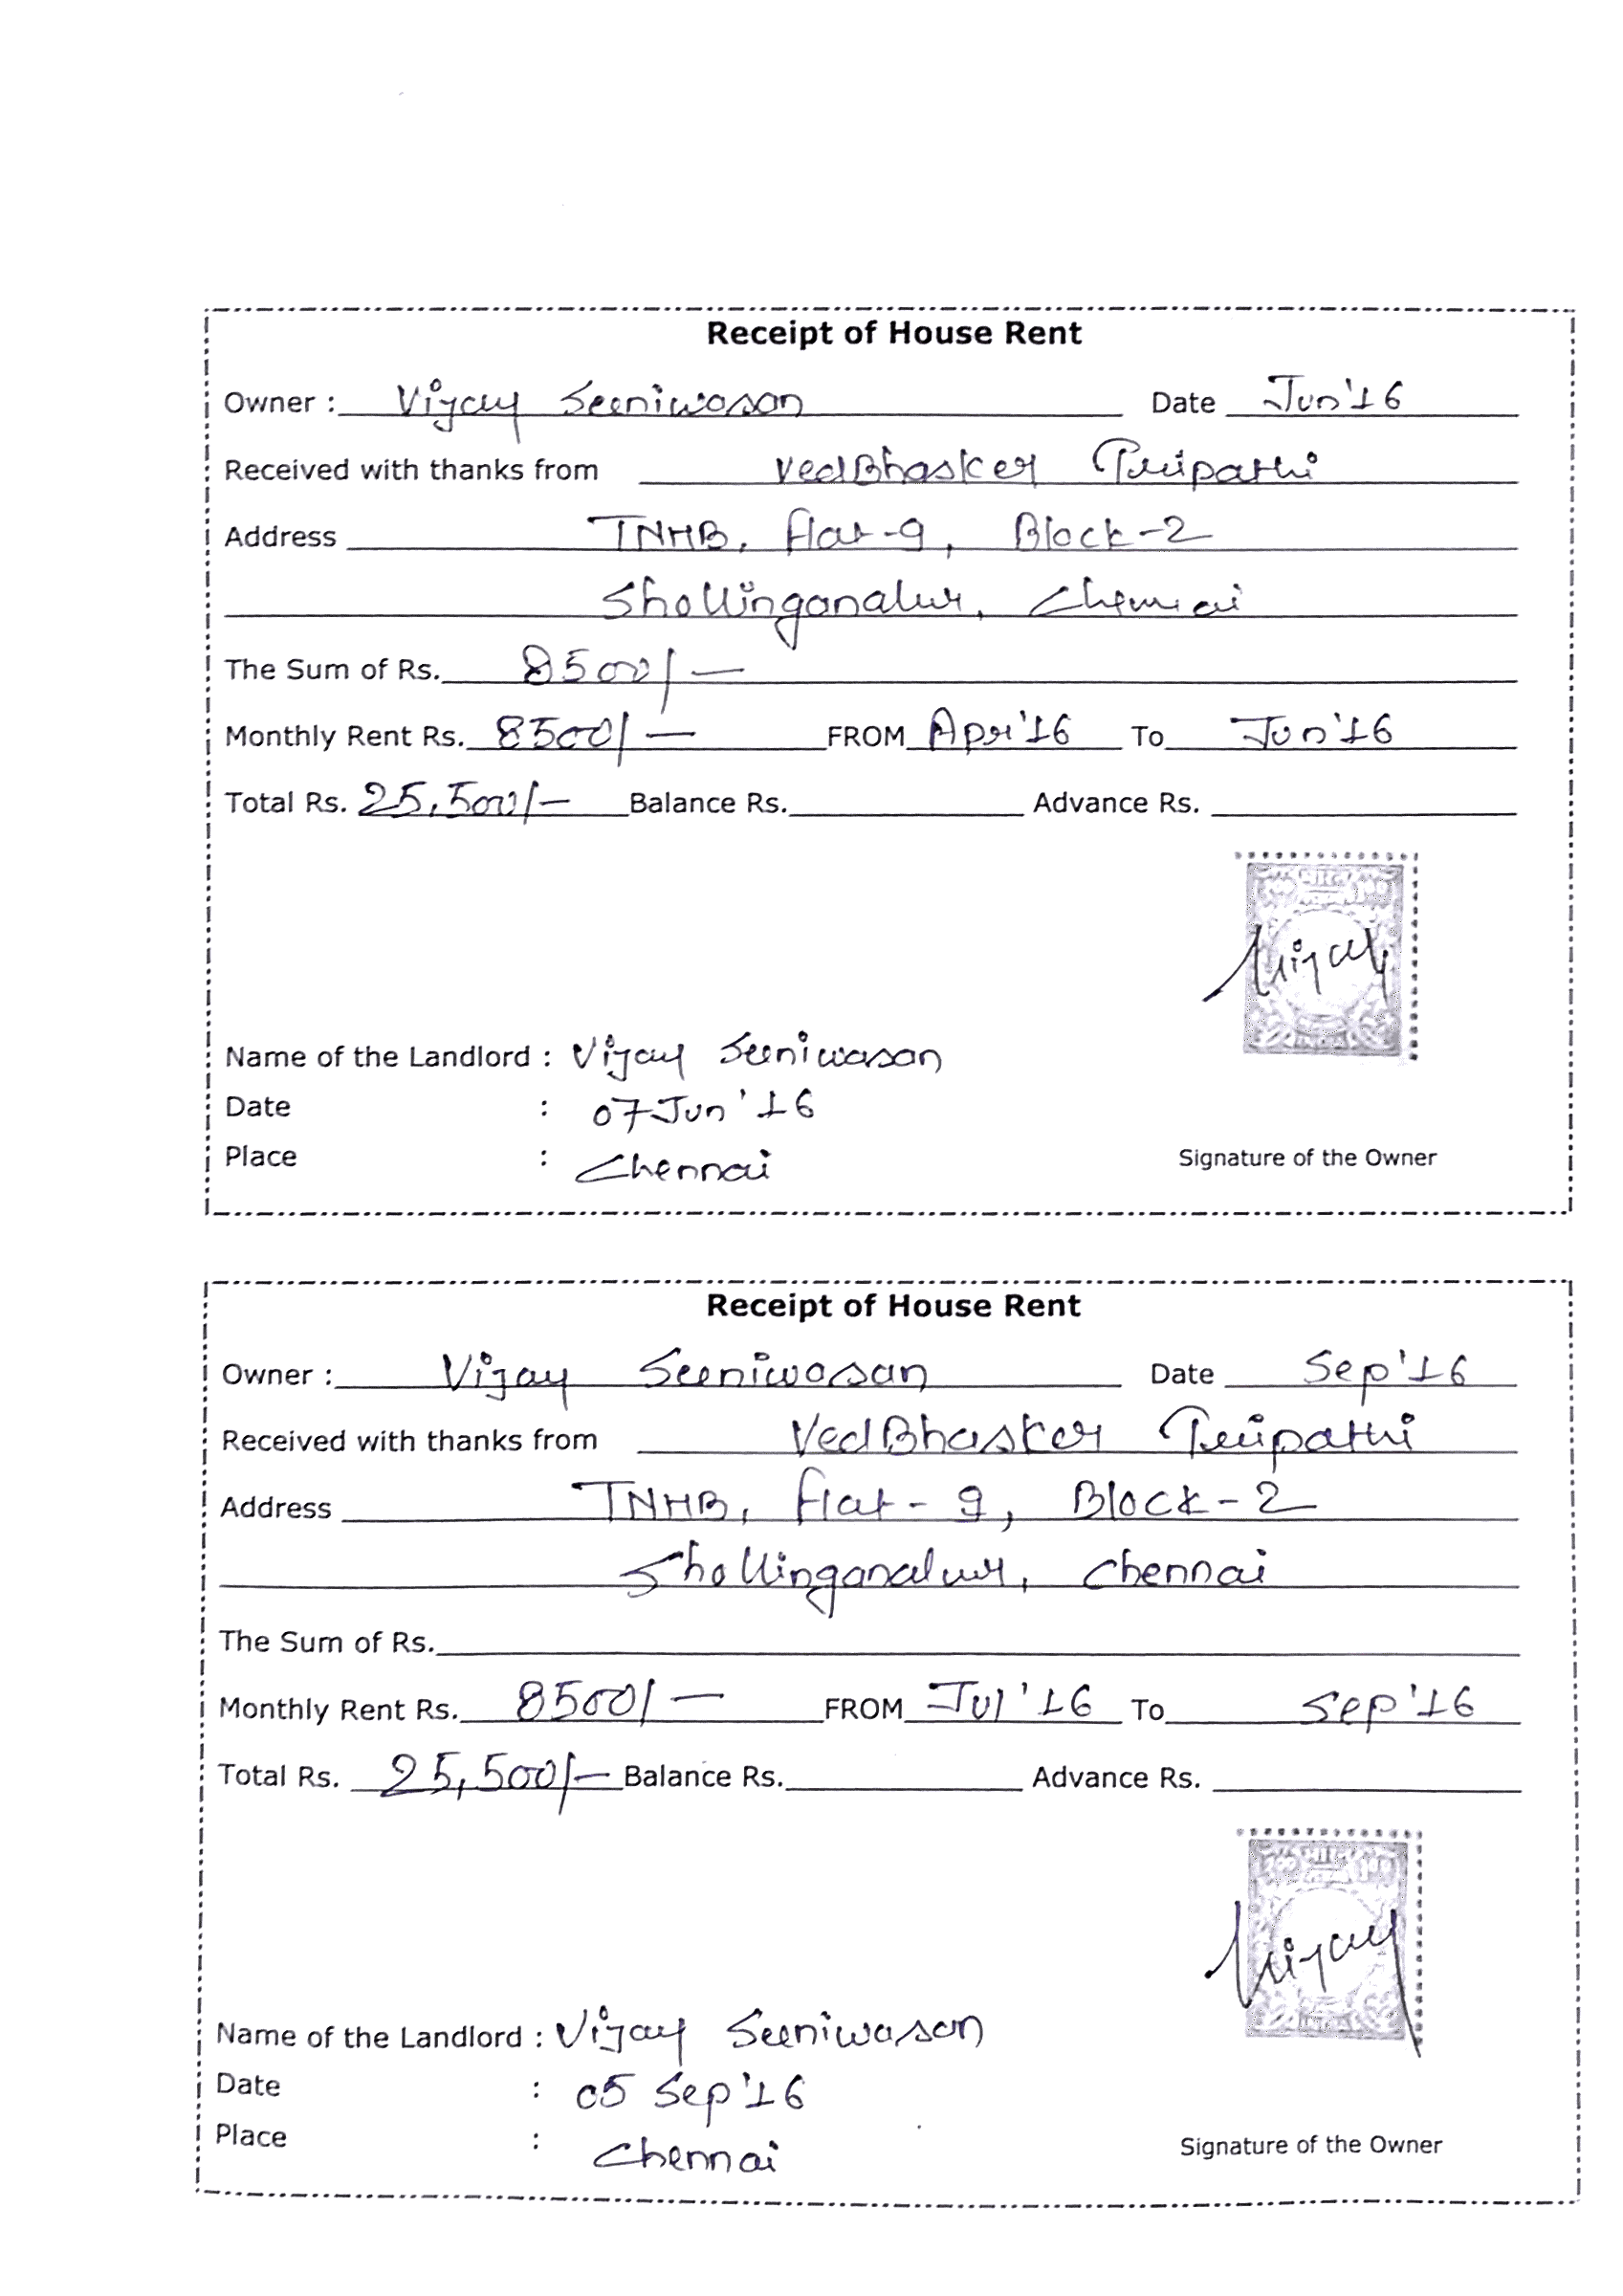 Receipt of House Rent
Owner : Vijay Seeniwasan Date Jun'16
Received with thanks from VedBhasker Tripathi
Address TNHB, flat-9, Block-2
Shollinganalur, Chennai
The Sum of Rs. 8500/-
Monthly Rent Rs. 8500/- FROM Apr'16 To Jun'16
Total Rs. 25,500/- Balance Rs. Advance Rs.
Vijay
INDIA
Name of the Landlord : Vijay Seeniwasan
Date : 07 Jun'16
Place : Chennai Signature of the Owner
Receipt of House Rent
Owner : Vijay Seeniwasan Date Sep'16
Received with thanks from VedBhasker Tripathi
Address TNHB, flat-9, Block-2
Shollinganalur, Chennai
The Sum of Rs.
Monthly Rent Rs. 8500/- FROM Jul'16 To Sep'16
Total Rs. 25,500/- Balance Rs. Advance Rs.
Vijay
Name of the Landlord : Vijay Seeniwasan
Date : 05 Sep'16
Place : Chennai Signature of the Owner